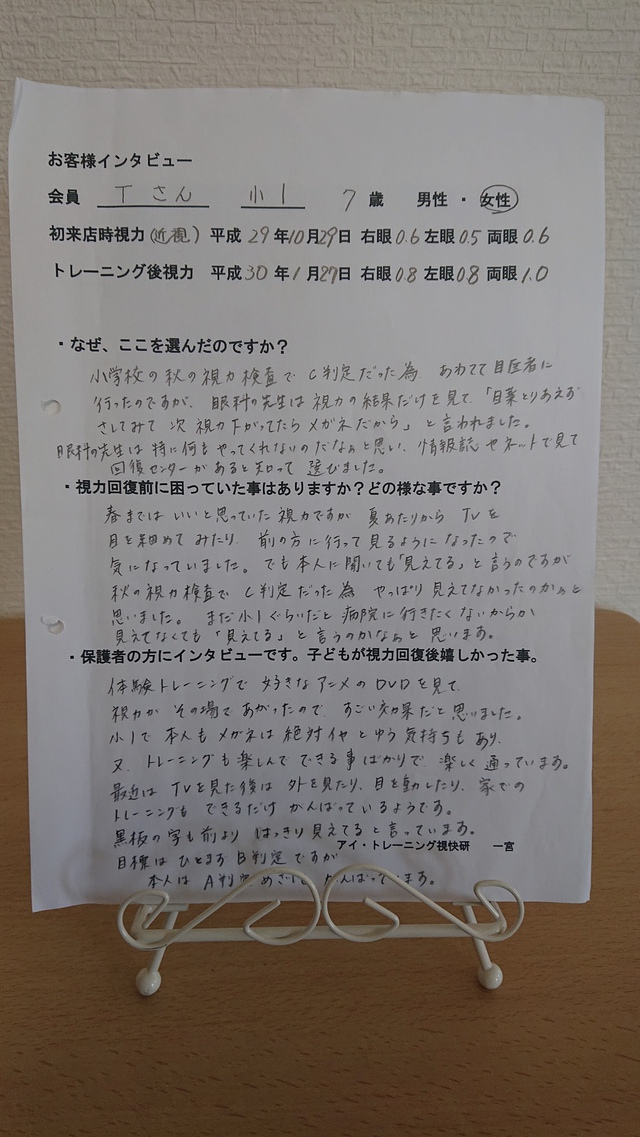 お客様インタビュー
会員 Tさん 小1 7歳 男性・女性
初来店時視力(近視) 平成29年10月29日 右眼0.6左眼0.5両眼0.6
トレーニング後視力 平成30年1月27日 右眼0.8左眼0.8両眼1.0
・なぜ、ここを選んだのですか?
小学校の秋の視力検査でC判定だった為 あわてて目医者に
行ったのですが、眼科の先生は視力の結果だけを見て、「目薬とりあえず
さしてみて 次 視力下がってたらメガネだから」と言われました。
眼科の先生は特に何もやってくれないのだなぁと思い、情報誌やネットで見て
回復センターがあると知って選びました。
・視力回復前に困っていた事はありますか?どの様な事ですか?
春まではいいと思っていた視力ですが 夏あたりから TVを
目を細めてみたり、前の方に行って見るようになったので
気になっていました。でも本人に聞いても「見えてる」と言うのですが
秋の視力検査でC判定だった為 やっぱり見えてなかったのかぁと
思いました。まだ小1ぐらいだと病院に行きたくないからか
見えてなくても「見えてる」と言うのかなぁと思います。
・保護者の方にインタビューです。子どもが視力回復後嬉しかった事。
体験トレーニングで 好きなアニメのDVDを見て、
視力が その場であがったので、すごい効果だと思いました。
小1で 本人もメガネは絶対イヤとゆう気持ちもあり、
又、トレーニングも楽しんでできる事ばかりで、楽しく通っています。
最近は TVを見た後は 外を見たり、目を動したり、家での
トレーニングも できるだけ がんばっているようです。
黒板の字も前より はっきり見えてると言っています。
アイ・トレーニング視快研 一宮
目標は ひとまずB判定ですが
本人は A判定めざして がんばっています。